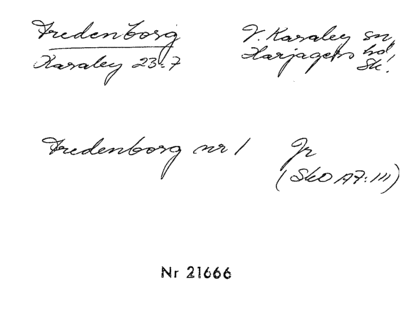 Fredenborg
Karaby 23:7
V. Karaby sn,
Harjagers hd,
Sk.
Fredenborg nr 1
Jr
(SkO A7:III)
Nr 21666